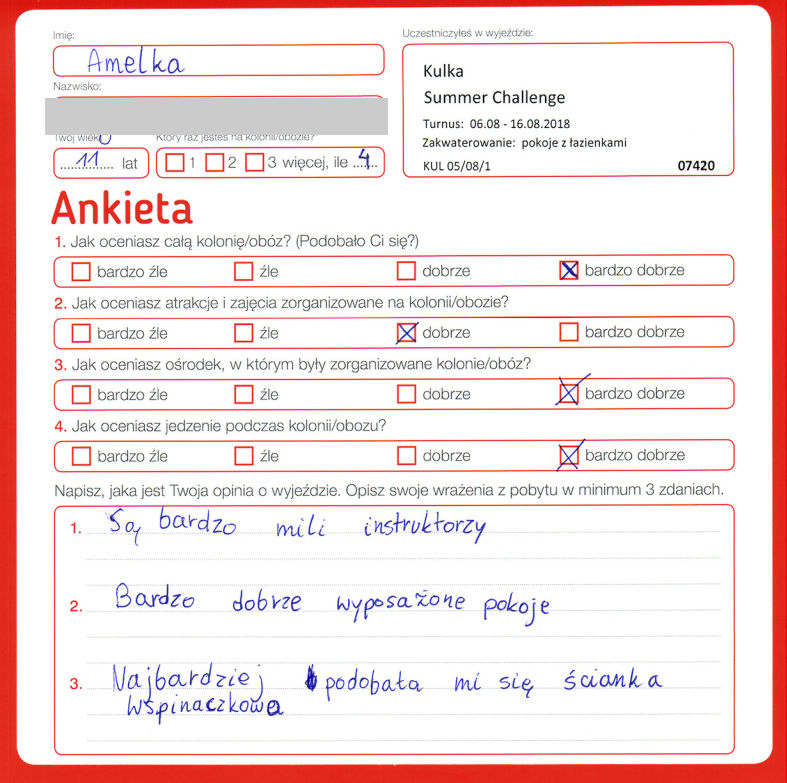 Imię:
Uczestniczyłeś w wyjeździe:
Amelka
Nazwisko:
Kulka
Summer Challenge
Turnus: 06.08 - 16.08.2018
Zakwaterowanie: pokoje z łazienkami
KUL 05/08/1 07420
Twój wiek
Który raz jesteś na kolonii/obozie?
11 lat
1 2 3 więcej, ile 4
Ankieta
1. Jak oceniasz całą kolonię/obóz? (Podobało Ci się?)
bardzo źle źle dobrze bardzo dobrze
2. Jak oceniasz atrakcje i zajęcia zorganizowane na kolonii/obozie?
bardzo źle źle dobrze bardzo dobrze
3. Jak oceniasz ośrodek, w którym były zorganizowane kolonie/obóz?
bardzo źle źle dobrze bardzo dobrze
4. Jak oceniasz jedzenie podczas kolonii/obozu?
bardzo źle źle dobrze bardzo dobrze
Napisz, jaka jest Twoja opinia o wyjeździe. Opisz swoje wrażenia z pobytu w minimum 3 zdaniach.
1. Są bardzo mili instruktorzy
2. Bardzo dobrze wyposażone pokoje
3. Najbardziej podobała mi się ścianka
wspinaczkowa